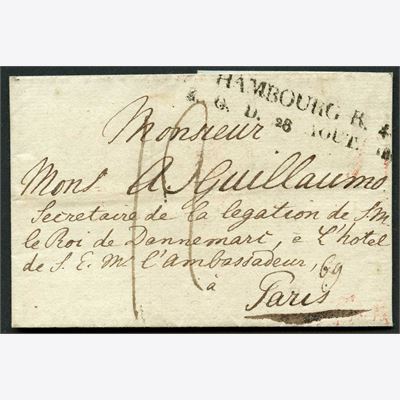 HAMBOURG R. 4
G. D. 28 AOUT
Monsieur
Mons A Guillaumo
Secretaire de la legation de S. M.
le Roi de Dannemarc, e L'hotel
de S. E. Mr l'ambassadeur, 69
à
Paris